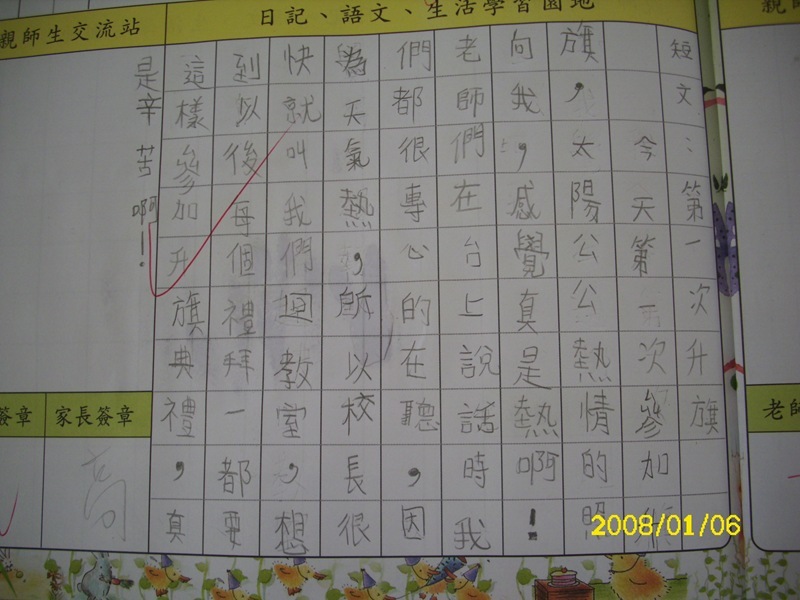 日記、語文、生活學習園地
短文：第一次升旗
今天第一次參加
旗，太陽公公熱情的照
向我，感覺真是熱啊！
老師們在台上說話時我
們都很專心的在聽，因
為天氣熱，所以校長很
快就叫我們迴教室，想
到以後每個禮拜一都要
這樣參加升旗典禮，真
是辛苦啊！
親師生交流站
家長簽章
簽章
親師
老師
2008/01/06